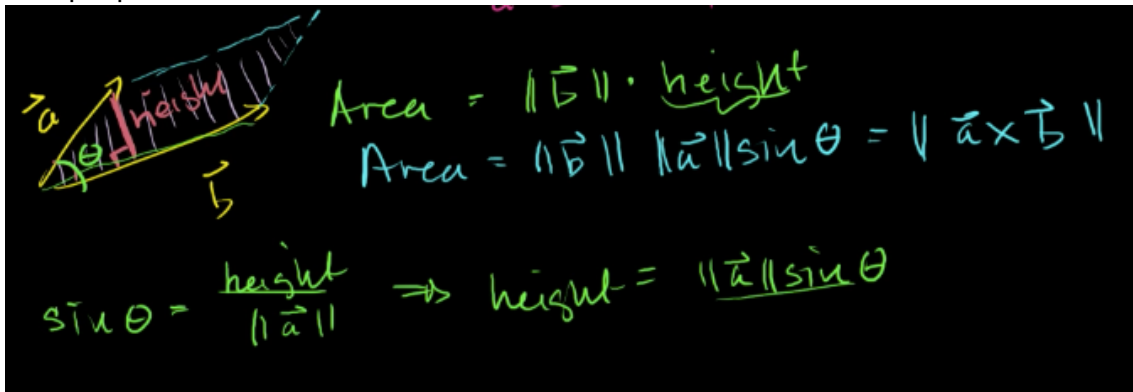 a⃗
height
θ
b⃗
Area = ‖b⃗‖ · height
Area = ‖b⃗‖ ‖a⃗‖ sin θ = ‖ a⃗ × b⃗ ‖
sin θ = height / ‖a⃗‖ ⇒ height = ‖a⃗‖ sin θ